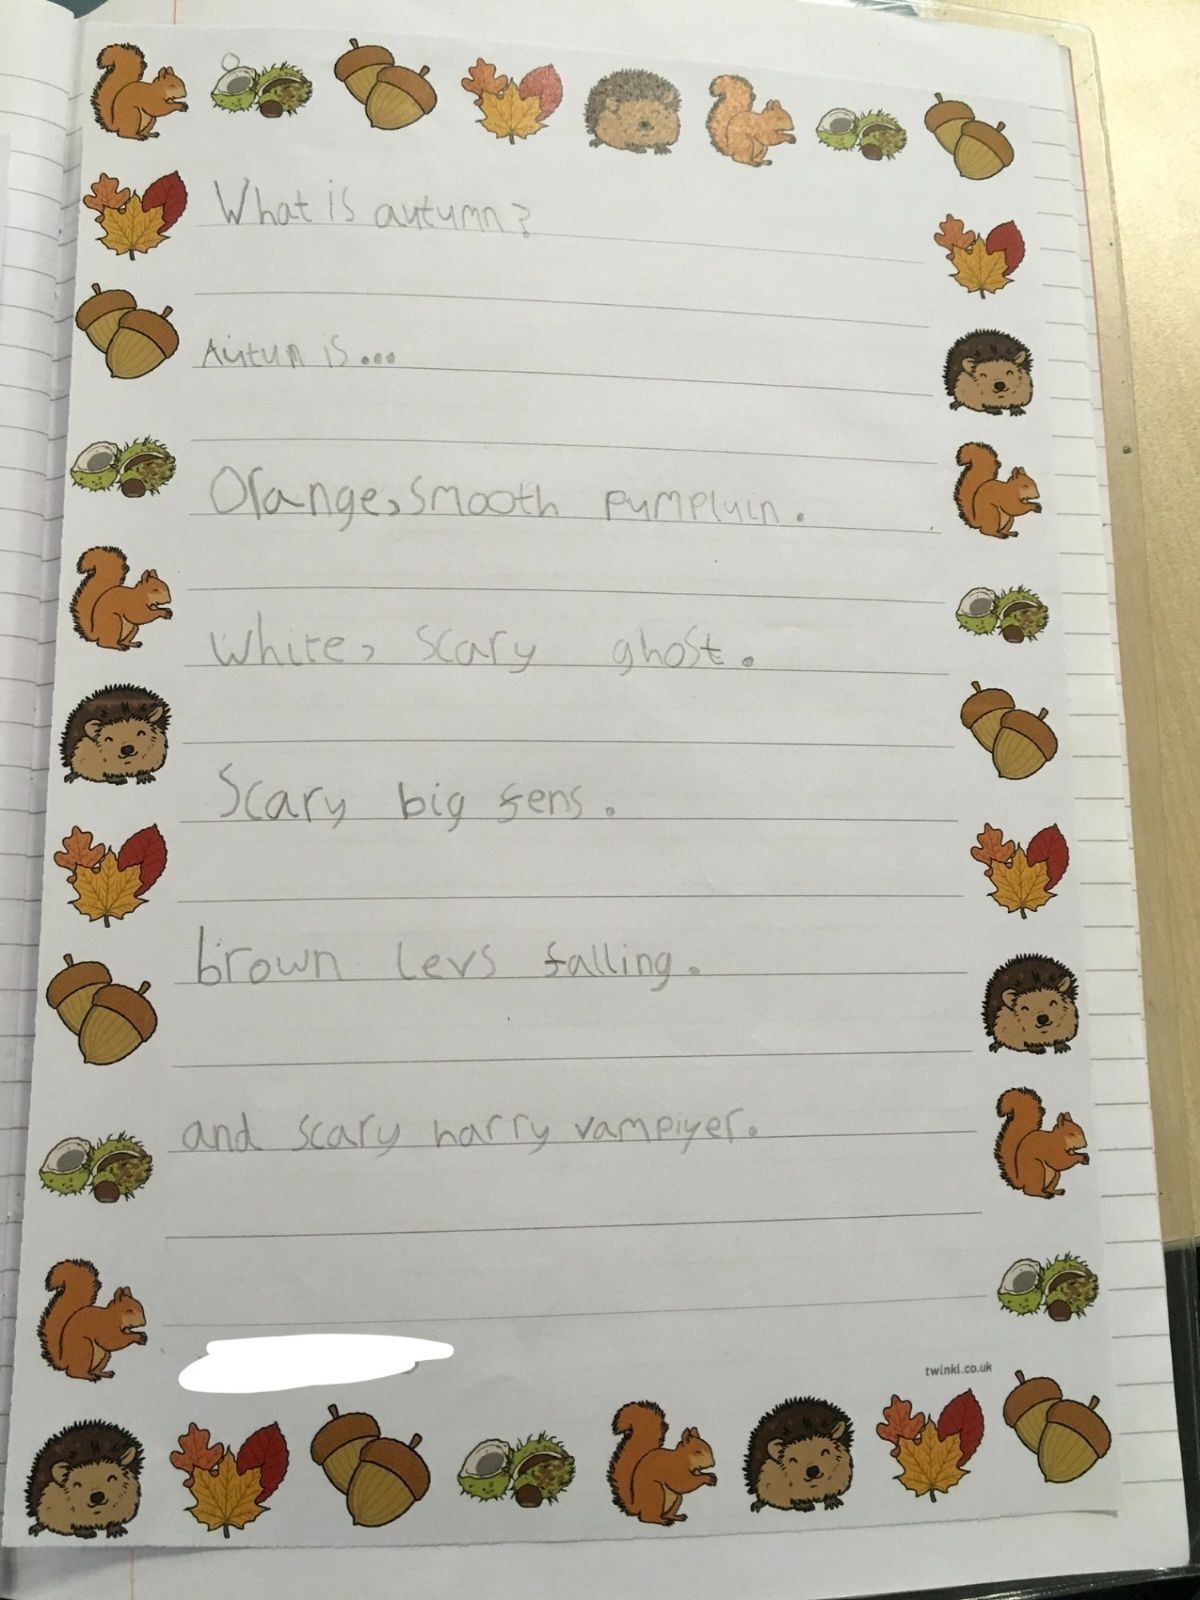 What is autumn?
Autum is...
Orange, smooth pumpluin.
White, scary ghost.
Scary big fens.
brown levs falling.
and scary harry vampiyer.
twinkl.co.uk